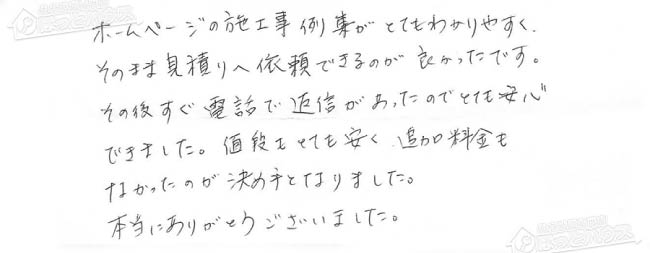 ホームページの施工事例集がとてもわかりやすく、
そのまま見積りへ依頼できるのが良かったです。
その後すぐ電話で返信があったのでとても安心
できました。値段もとても安く、追加料金も
なかったのが決め手となりました。
本当にありがとうございました。